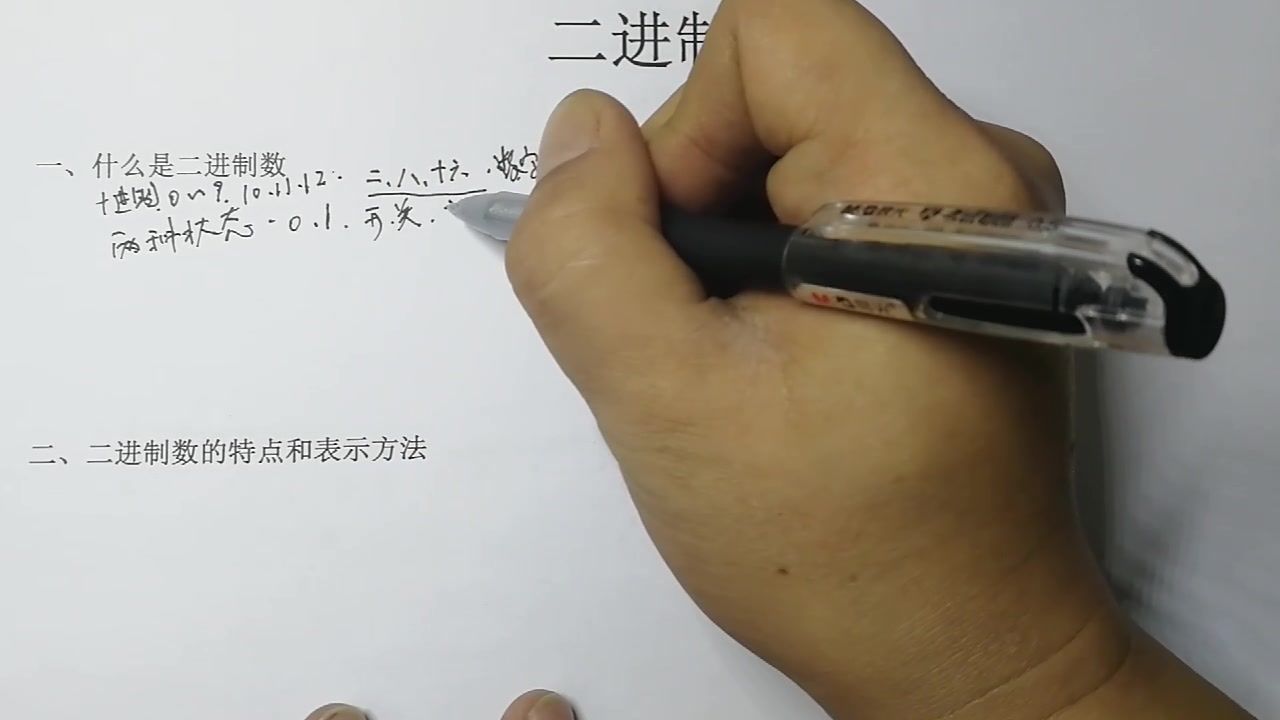 二进制
一、什么是二进制数
十进制 0~9. 10.11.12..
二、八、十六.数字
两种状态-0.1.开.关.
二、二进制数的特点和表示方法